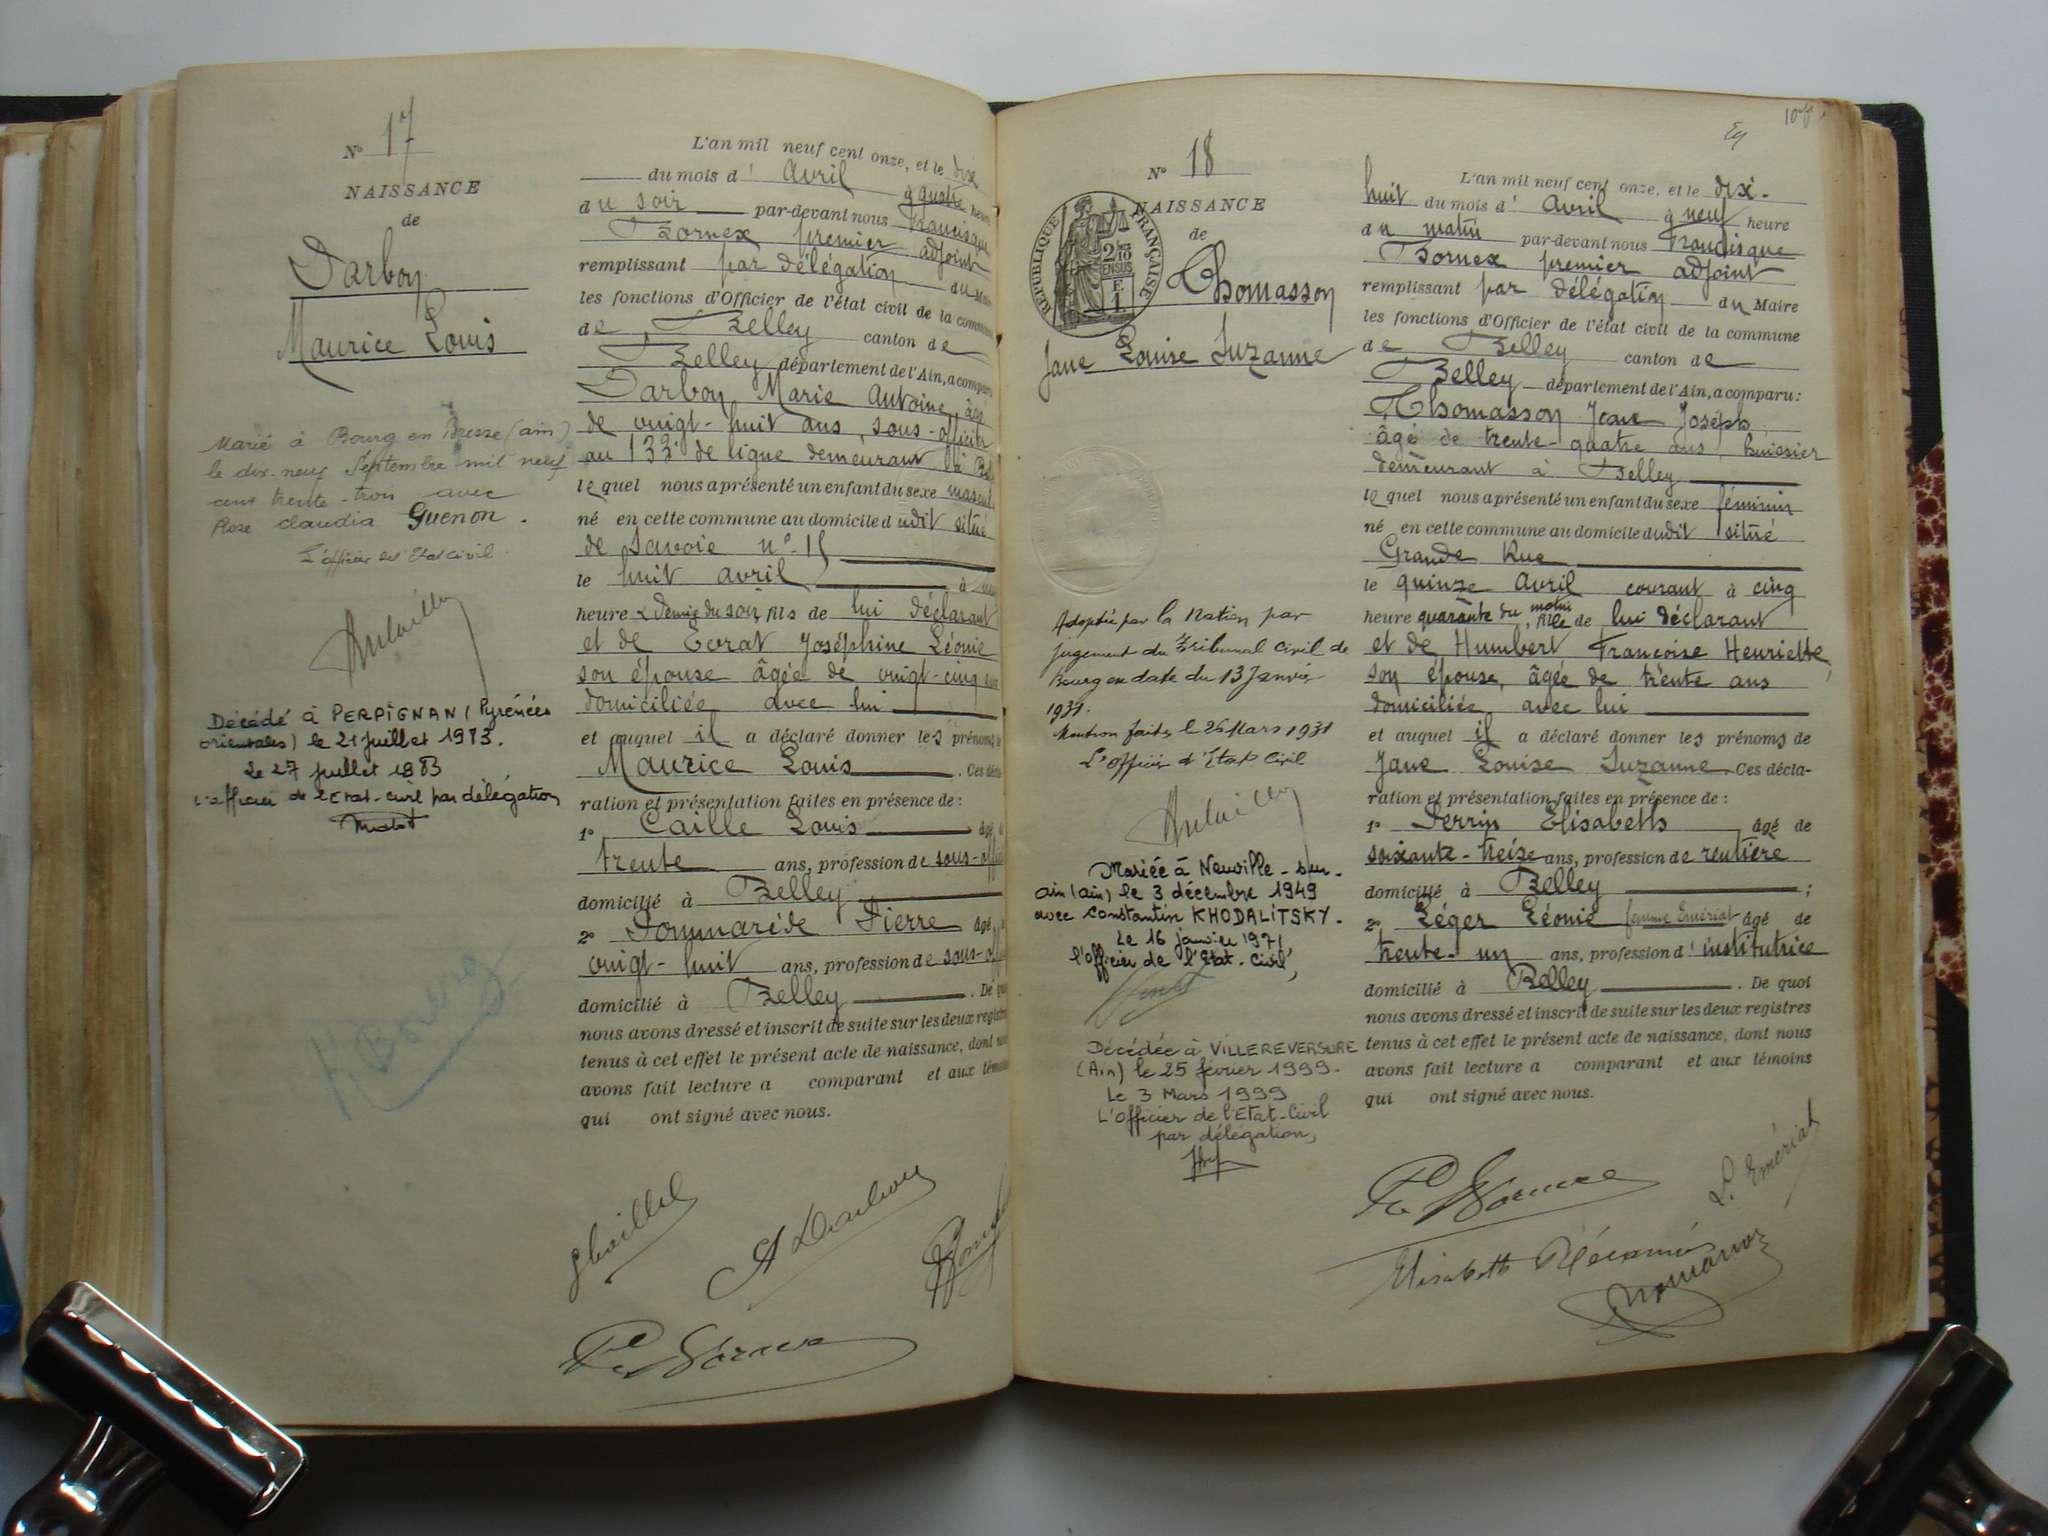 N° 17
NAISSANCE
de
Darbon
Maurice Louis
Marié à Bourg en Bresse (ain)
le dix-neuf Septembre mil neuf
cent trente-trois avec
Rose Claudia Guenon.
L'officier de l'Etat Civil.
Décédé à PERPIGNAN (Pyrénées
orientales) le 21 juillet 1983.
Le 27 juillet 1983
L'officier de l'Etat-civil par délégation
L'an mil neuf cent onze, et le dix
du mois d'Avril à quatre heure
du soir par-devant nous Francisque
Bornex premier adjoint
remplissant par délégation du Maire
les fonctions d'Officier de l'état civil de la commune
de Belley canton de
Belley département de l'Ain, a comparu
Darbon Marie Antoine âgé
de vingt-huit ans, sous-officier
au 133e de ligne demeurant à
lequel nous a présenté un enfant du sexe mascul
né en cette commune au domicile dudit situé
de Savoie n°
le huit avril à
heure & demie du soir, fils de lui déclarant
et de Joséphine Léonie
son épouse âgée de vingt-cinq ans
domiciliée avec lui
et auquel il a déclaré donner les prénoms de
Maurice Louis. Ces décla
ration et présentation faites en présence de :
1° Caille Louis âgé
trente ans, profession de sous-offi
domicilié à Belley
2° Pommarède Pierre âgé
vingt-huit ans, profession de sous-off
domicilié à Belley. De quoi
nous avons dressé et inscrit de suite sur les deux registres
tenus à cet effet le présent acte de naissance, dont nous
avons fait lecture a comparant et aux témoins
qui ont signé avec nous.
A Darbon
N° 18
NAISSANCE
de
RÉPUBLIQUE FRANÇAISE
2/10 EN SUS
Thomasson
Jane Louise Suzanne
Adoptée par la Nation par
jugement du Tribunal Civil de
Bourg en date du 13 Janvier
1931.
Mention faite le 26 Mars 1931
L'officier d'Etat Civil
Mariée à Neuville-sur-
ain (ain) le 3 décembre 1949
avec Constantin KHODALITSKY.
Le 16 janvier 1971
l'officier de l'Etat-Civil,
Décédée à VILLEREVERSURE
(Ain) le 25 février 1999.
Le 3 Mars 1999
L'Officier de l'Etat-Civil
par délégation,
L'an mil neuf cent onze, et le dix-
huit du mois d'Avril à neuf heure
du matin par-devant nous Francisque
Bornex premier adjoint
remplissant par délégation du Maire
les fonctions d'Officier de l'état civil de la commune
de Belley canton de
Belley département de l'Ain, a comparu :
Thomasson Jean Joseph,
âgé de trente-quatre ans, huissier
demeurant à Belley
lequel nous a présenté un enfant du sexe féminin
né en cette commune au domicile dudit situé
Grande Rue
le quinze Avril courant à cinq
heure quarante du matin, fille de lui déclarant
et de Humbert Françoise Henriette,
son épouse, âgée de trente ans
domiciliée avec lui
et auquel il a déclaré donner les prénoms de
Jane Louise Suzanne. Ces décla-
ration et présentation faites en présence de :
1° Perrin Elisabeth âgé de
soixante-treize ans, profession de rentière
domicilié à Belley ;
2° Léger Léonie femme Emériat âgé de
trente-un ans, profession d'institutrice
domicilié à Belley. De quoi
nous avons dressé et inscrit de suite sur les deux registres
tenus à cet effet le présent acte de naissance, dont nous
avons fait lecture a comparant et aux témoins
qui ont signé avec nous.
L. Emériat
Elisabeth